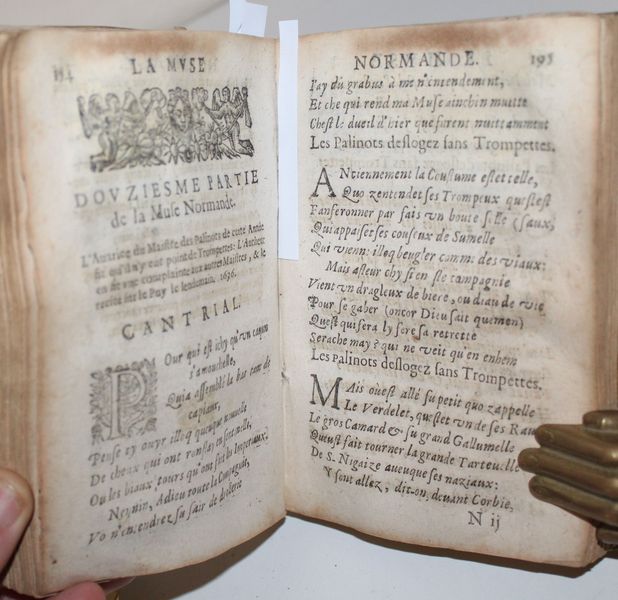 194 LA MVSE
DOVZIESME PARTIE
de la Muse Normande.
L'Auarice du Maistre des Palinots de cette Année
fit qu'il n'y eut point de Trompettes: L'Autheur
en fit vne complainte aux autres Maistres, & le
recita sur le Puy le lendemain. 1636.
CANTRIAL.
POur qui est ichy qu'vn cagnon
s'amouchelle,
Qui a assemblé la bar tant de
Pense ty ouyr illoq queuque nouuelle
De cheux qui ont
Ou les biaux tours qu'ont fait les Imperiaux?
Nennin, Adieu toute la Compagnie,
Vo n'entendrez su fair de
NORMANDE. 195
I'ay du grabus à me n'entendement,
Et che qui rend ma Muse ainchin muette
Chest le dueil d'hier que furent nuittamment
Les Palinots deslogez sans Trompettes.
ANtiennement la Coustume estet telle,
Quo zentendet ses Trompeux questest
Fanferonner par fais vn boute selle (saux,
Qui appaiset ses couseux de Sumelle
Qui vienn: illoq beugler camm: des viaux:
Mais asteur chy si en ste compagnie
Vient vn dragleux de biere, ou diau de vie
Pour se gaber (oncor Dieu sait quemen)
Quest qui sera ly sere sa retrette
Serache may? qui ne veit qu'en enhem
Les Palinots deslogez sans Trompettes.
MAis ouest allé su petit quo zappelle
Le Verdelet, questet vn de ses Rau
Le gros Camard & su grand Gallumelle
Queust fait tourner la grande Tarteuelle
De S. Nigaize aueuque ses naziaux:
Y sont allez, dit-on, deuant Corbie,
N ij